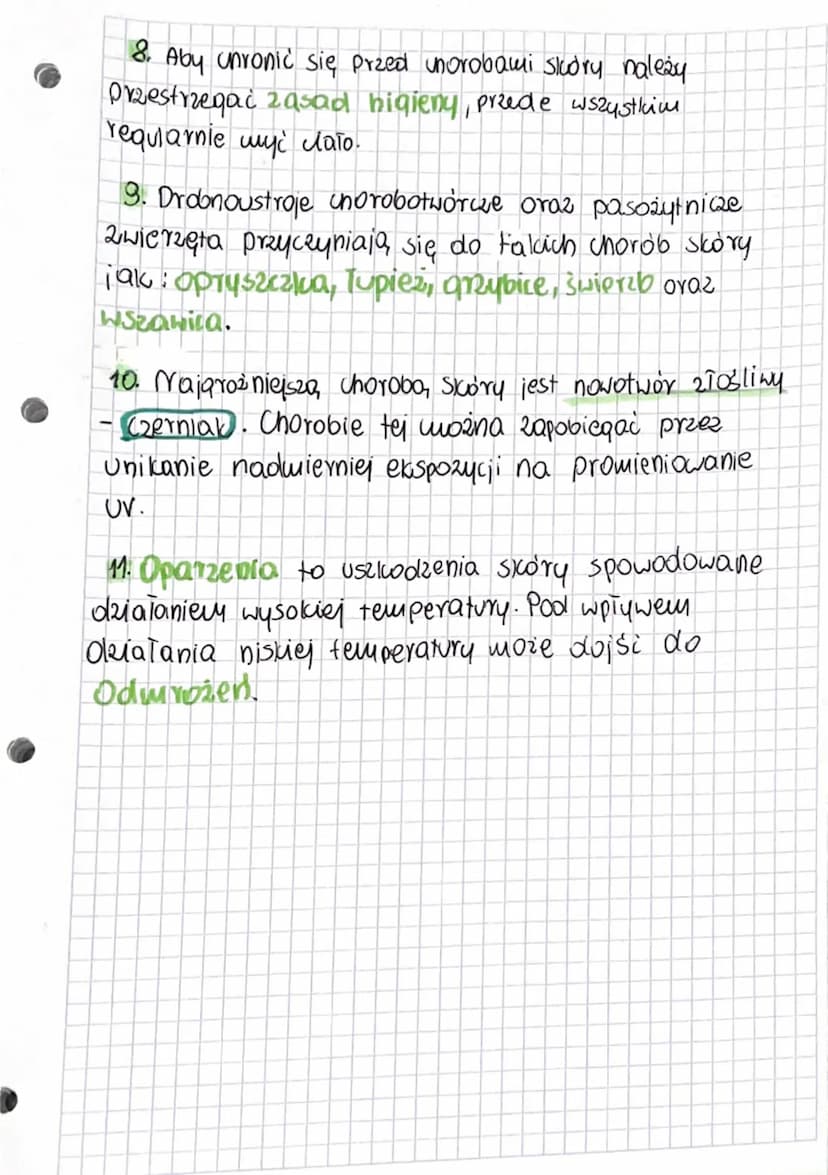 8. Aby chronić się przed chorobami skóry należy
przestrzegać zasad higieny, przede wszystkim
regularnie myć ciało.
9. Drobnoustroje chorobotwórcze oraz pasożytnicze
zwierzęta przyczyniają się do takich chorób skóry
jak: opryszczka, łupież, grzybice, świerzb oraz
wszawica.
10. Najgroźniejszą chorobą skóry jest nowotwór złośliwy
- czerniak. Chorobie tej można zapobiegać przez
unikanie nadmiernej ekspozycji na promieniowanie
UV.
11. Oparzenia to uszkodzenia skóry spowodowane
działaniem wysokiej temperatury. Pod wpływem
działania niskiej temperatury może dojść do
Odmrożeń.